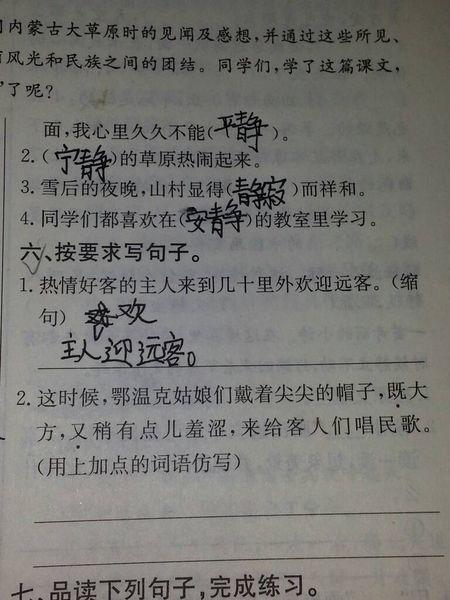 内蒙古大草原时的见闻及感想,并通过这些所见、
风光和民族之间的团结。同学们,学了这篇课文,
了呢?
面,我心里久久不能(平静)。
2.(宁静)的草原热闹起来。
3.雪后的夜晚,山村显得(静寂)而祥和。
4.同学们都喜欢在(安静)的教室里学习。
六、按要求写句子。
1.热情好客的主人来到几十里外欢迎远客。(缩
句) 欢
主人迎远客。
2.这时候,鄂温克姑娘们戴着尖尖的帽子,既大
方,又稍有点儿羞涩,来给客人们唱民歌。
(用上加点的词语仿写)
七、品读下列句子,完成练习。